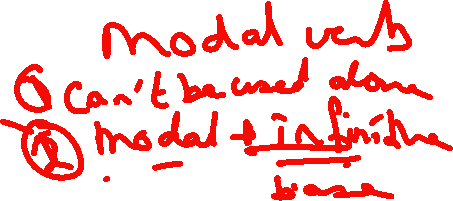 modal verb
① Can't be used alone
② modal + infinitive
base